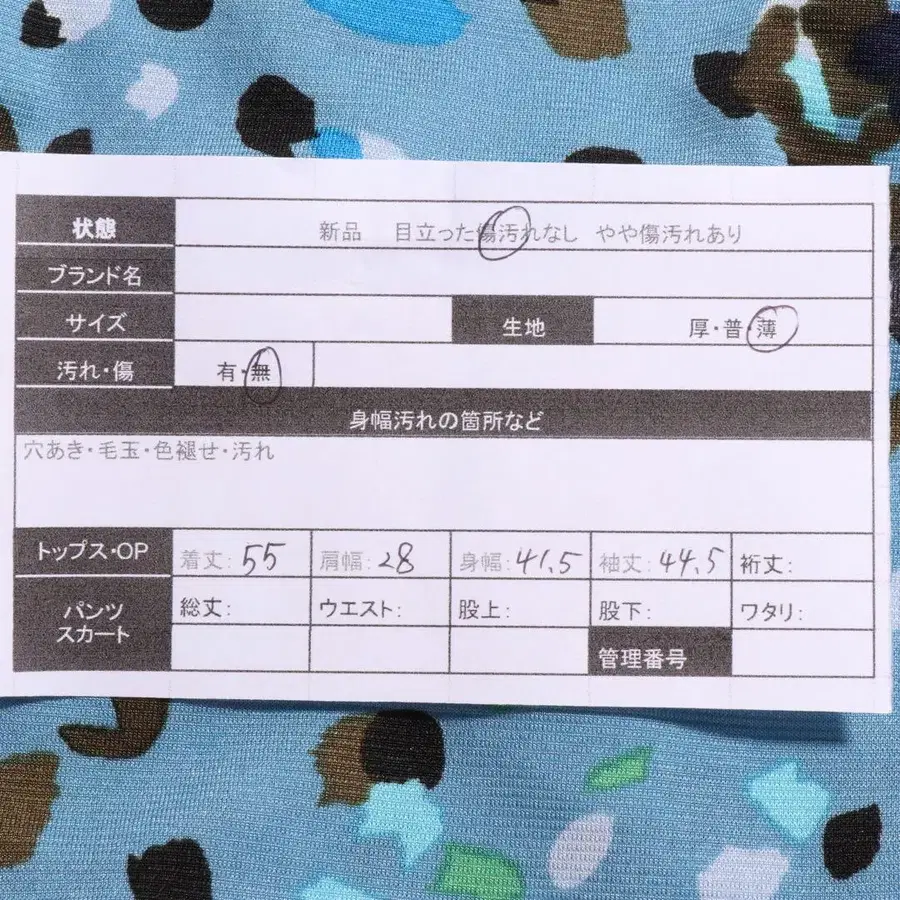 状態 新品 目立った傷汚れなし やや傷汚れあり
ブランド名
サイズ 生地 厚・普・薄
汚れ・傷 有・無
身幅汚れの箇所など
穴あき・毛玉・色褪せ・汚れ
トップス・OP 着丈: 55 肩幅: 28 身幅: 41.5 袖丈: 44.5 裄丈:
パンツ スカート 総丈: ウエスト: 股上: 股下: ワタリ:
管理番号